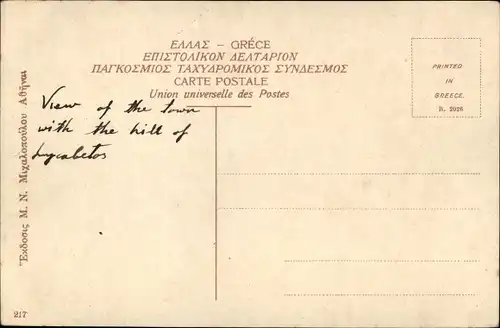 ΕΛΛΑΣ – GRÉCE
ΕΠΙΣΤΟΛΙΚΟΝ ΔΕΛΤΑΡΙΟΝ
ΠΑΓΚΟΣΜΙΟΣ ΤΑΧΥΔΡΟΜΙΚΟΣ ΣΥΝΔΕΣΜΟΣ
CARTE POSTALE
Union universelle des Postes
PRINTED
IN
GREECE.
R. 2026
View of the town
with the hill of
Lycabetos
Ἔκδοσις Μ. Ν. Μιχαλοπούλου Ἀθῆναι
217